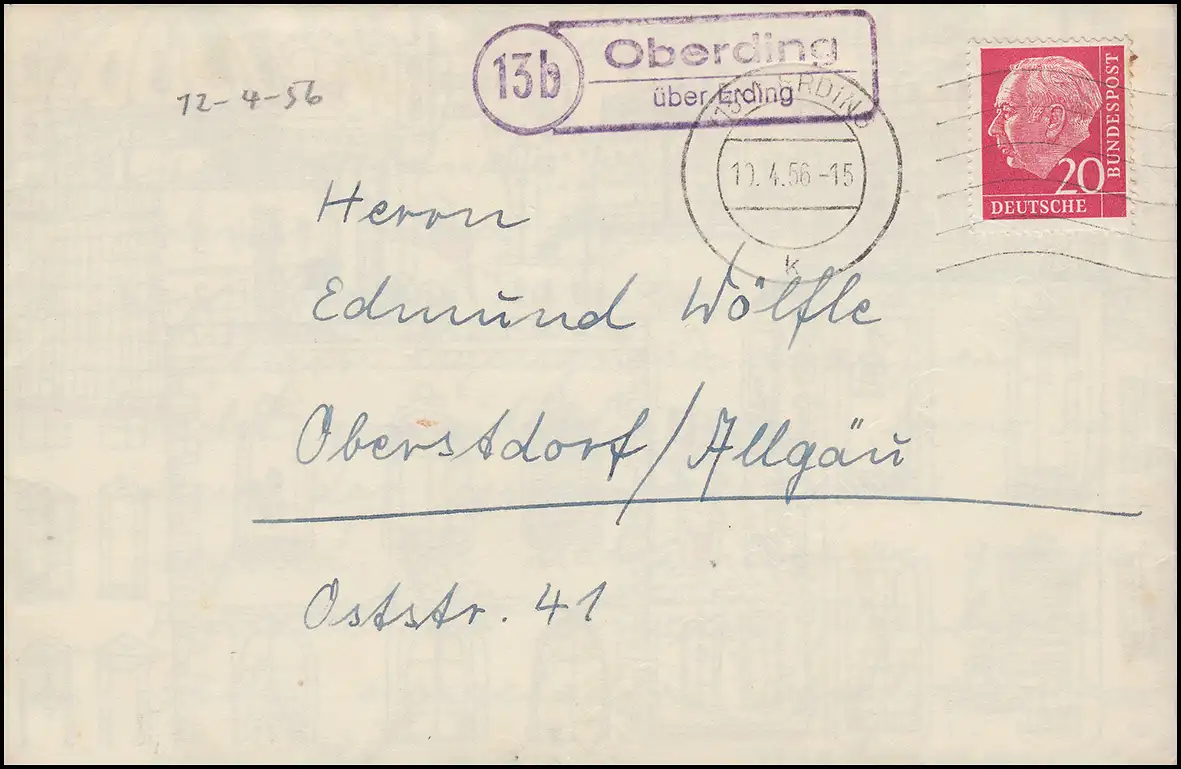 13b
Oberding
über Erding
12-4-56
ERDING
10.4.56-15
k
20
DEUTSCHE
BUNDESPOST
Herrn
Edmund Wölfle
Oberstdorf/Allgäu
Oststr. 41